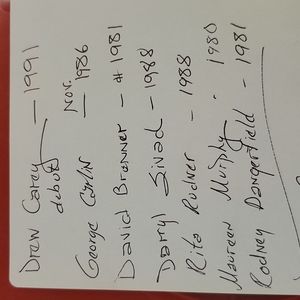 Drew Carey - 1991
debut
George Carlin - Nov. 1986
David Brenner - # 1981
Darryl Sivad - 1988
Rita Rudner - 1988
Maureen Murphy - 1980
Rodney Dangerfield - 1981